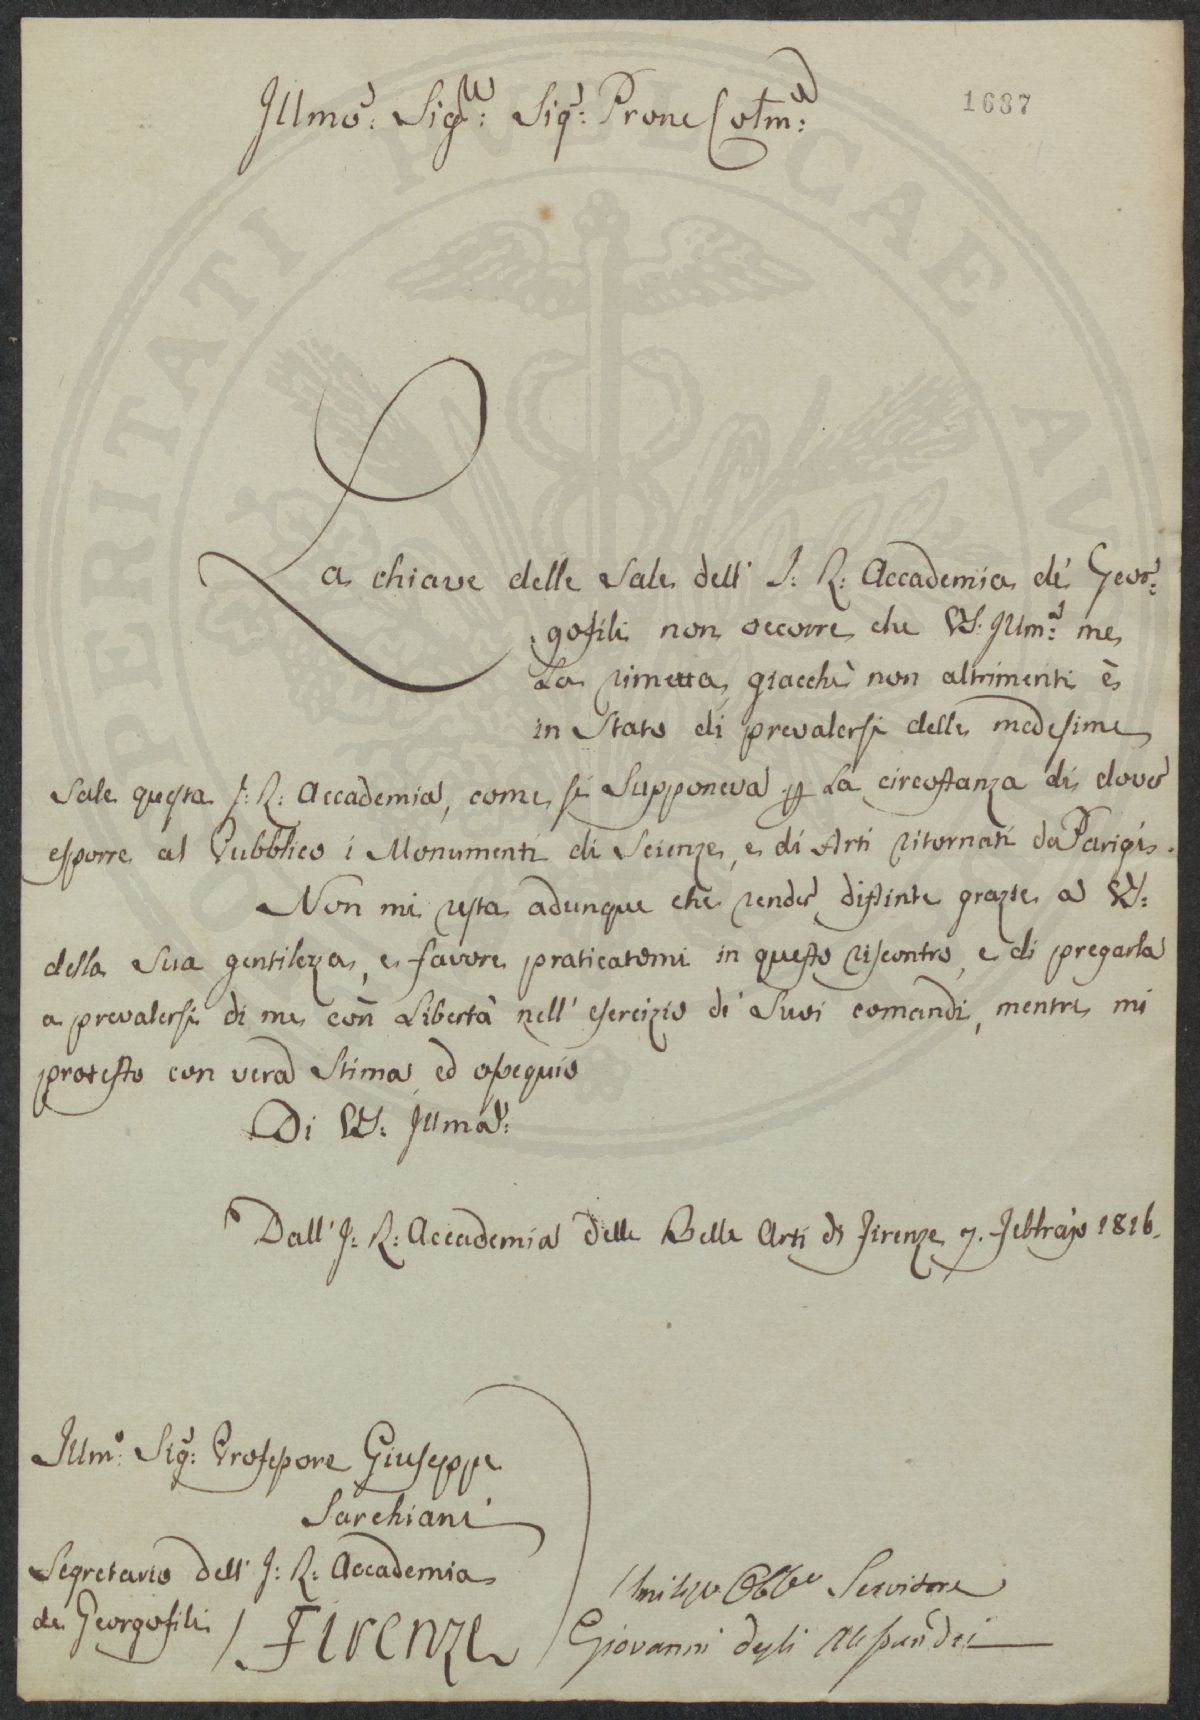 1687
Illmo: Sigre: Sigr: Prone Colmo:
La chiave delle Sale dell' I: R: Accademia de' Geor:
gofili non occorre che VS: Illma: me
La rimetta, giacchè non altrimenti è
in Stato di prevalersi delle medesime
Sale questa I: R: Accademia, come si Supponeva p La circostanza di dover
esporre al Pubblico i Monumenti di Scienze, e di Arti ritornati da Parigi.
Non mi resta adunque che render distinte grazie a VS:
della Sua gentilezza, e favore praticatomi in questo riscontro, e di pregarla
a prevalersi di me con Libertà nell' esercizio di' Suoi comandi, mentre mi
protesto con vera Stima ed ossequio
Di VS: Illma:
Dall' I: R: Accademia delle Belle Arti di Firenze 7. Febbrajo 1816.
Illmo: Sigr: Professore Giuseppe
Sarchiani
Segretario dell' I: R: Accademia
de Georgofili / Firenze
Servitore
Giovanni degli Alessandri
PERITATI PUBLICAE AU